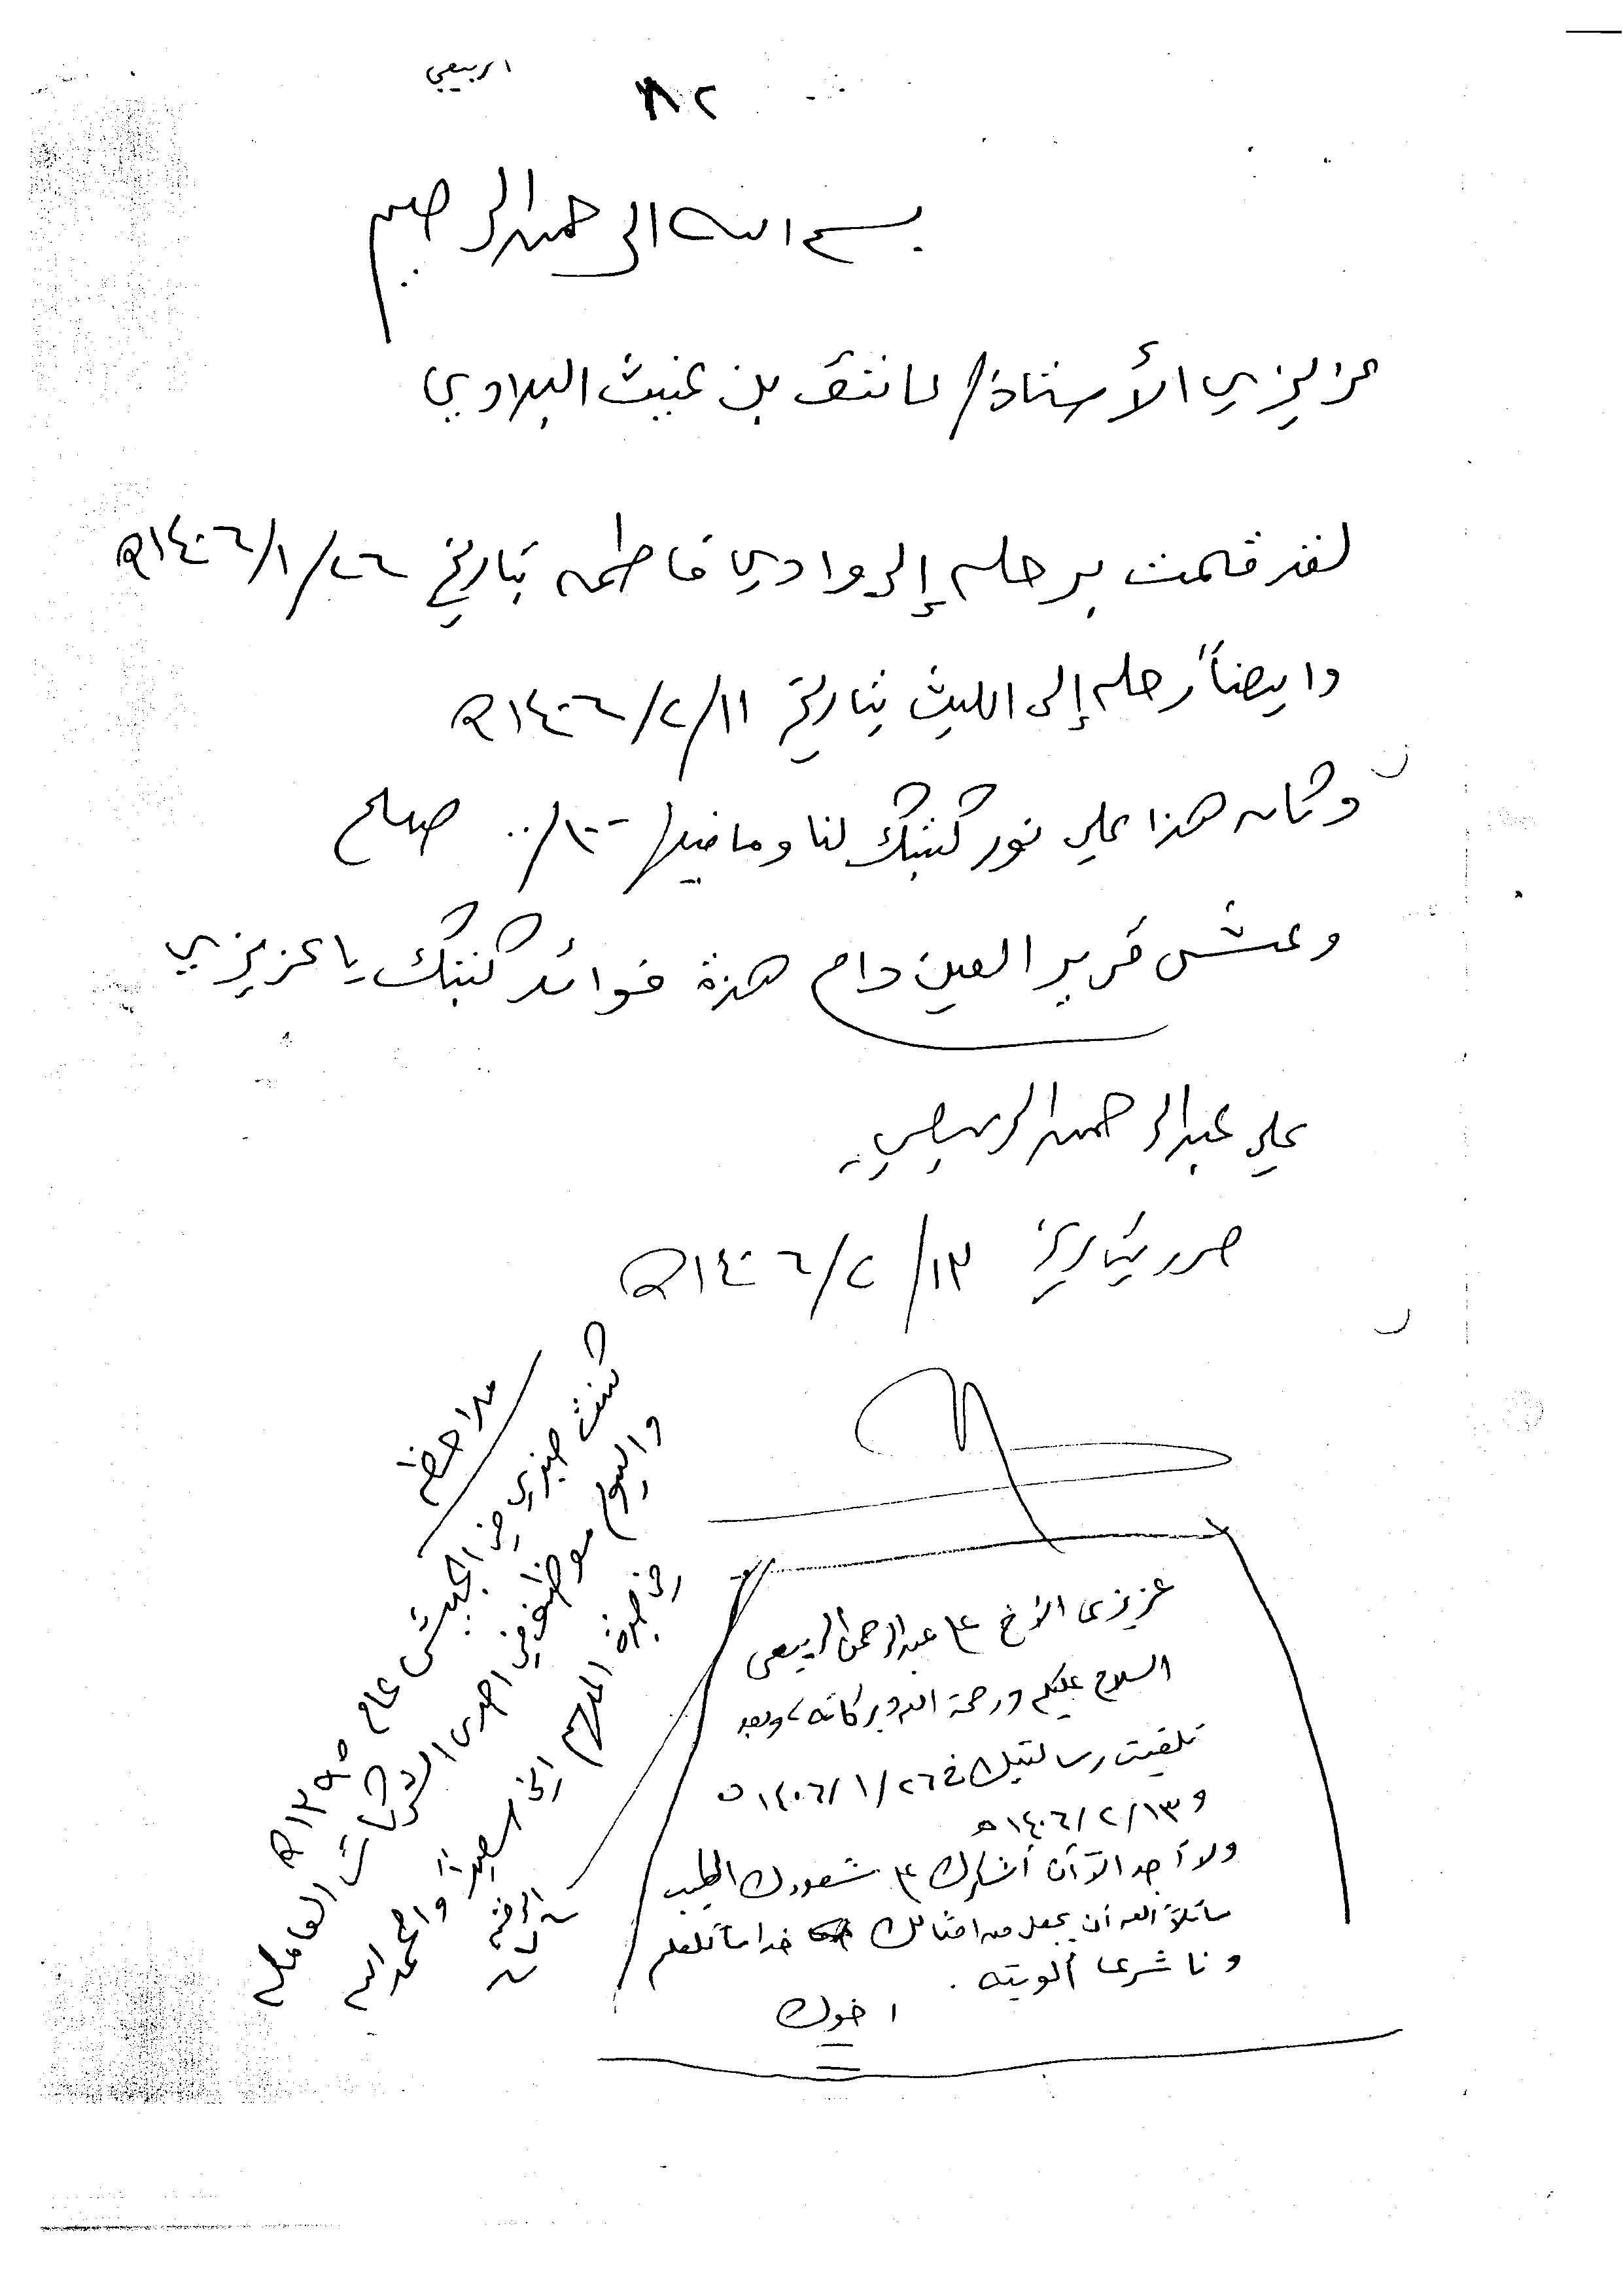 الربيعي
٨٢
بسم الله الرحمن الرحيم
عزيزي الأستاذ/ عاتق بن غيث البلادي
لقد قمت برحله إلى وادي فاطمه بتاريخ ١٤٠٦/١/٢٦ھ
وايضاً رحله إلى الليث بتاريخ ١٤٠٦/٢/١١ھ
وكان هذا على نور كتبك لنا وما فيها ١٠٠/٠٠ صلح
وعش قرير العين دام هذه فوائد كتبك يا عزيزي
علي عبدالرحمن الربيعي
حرر بتاريخ ١٤٠٦/٢/١٣ھ
ملاحظه
كنت جندي في الجيش عام ١٣٩٥ھ
واليوم موظف في احدى الشركات العامله
في جده المهم اني سعيداً والحمد لله
عزيزى الأخ علي عبدالرحمن الربيعى
السلام عليكم ورحمة الله وبركاته، وبعد
تلقيت رسالتيك في ١٤٠٦/١/٢٦ھ
و ١٤٠٦/٢/١٣ھ
ولا أجد الآن أشارك شعورك الطيب
سائلاً الله أن يجعل من امثالك خداماً للعلم
وناشرى ألويته .
اخوك